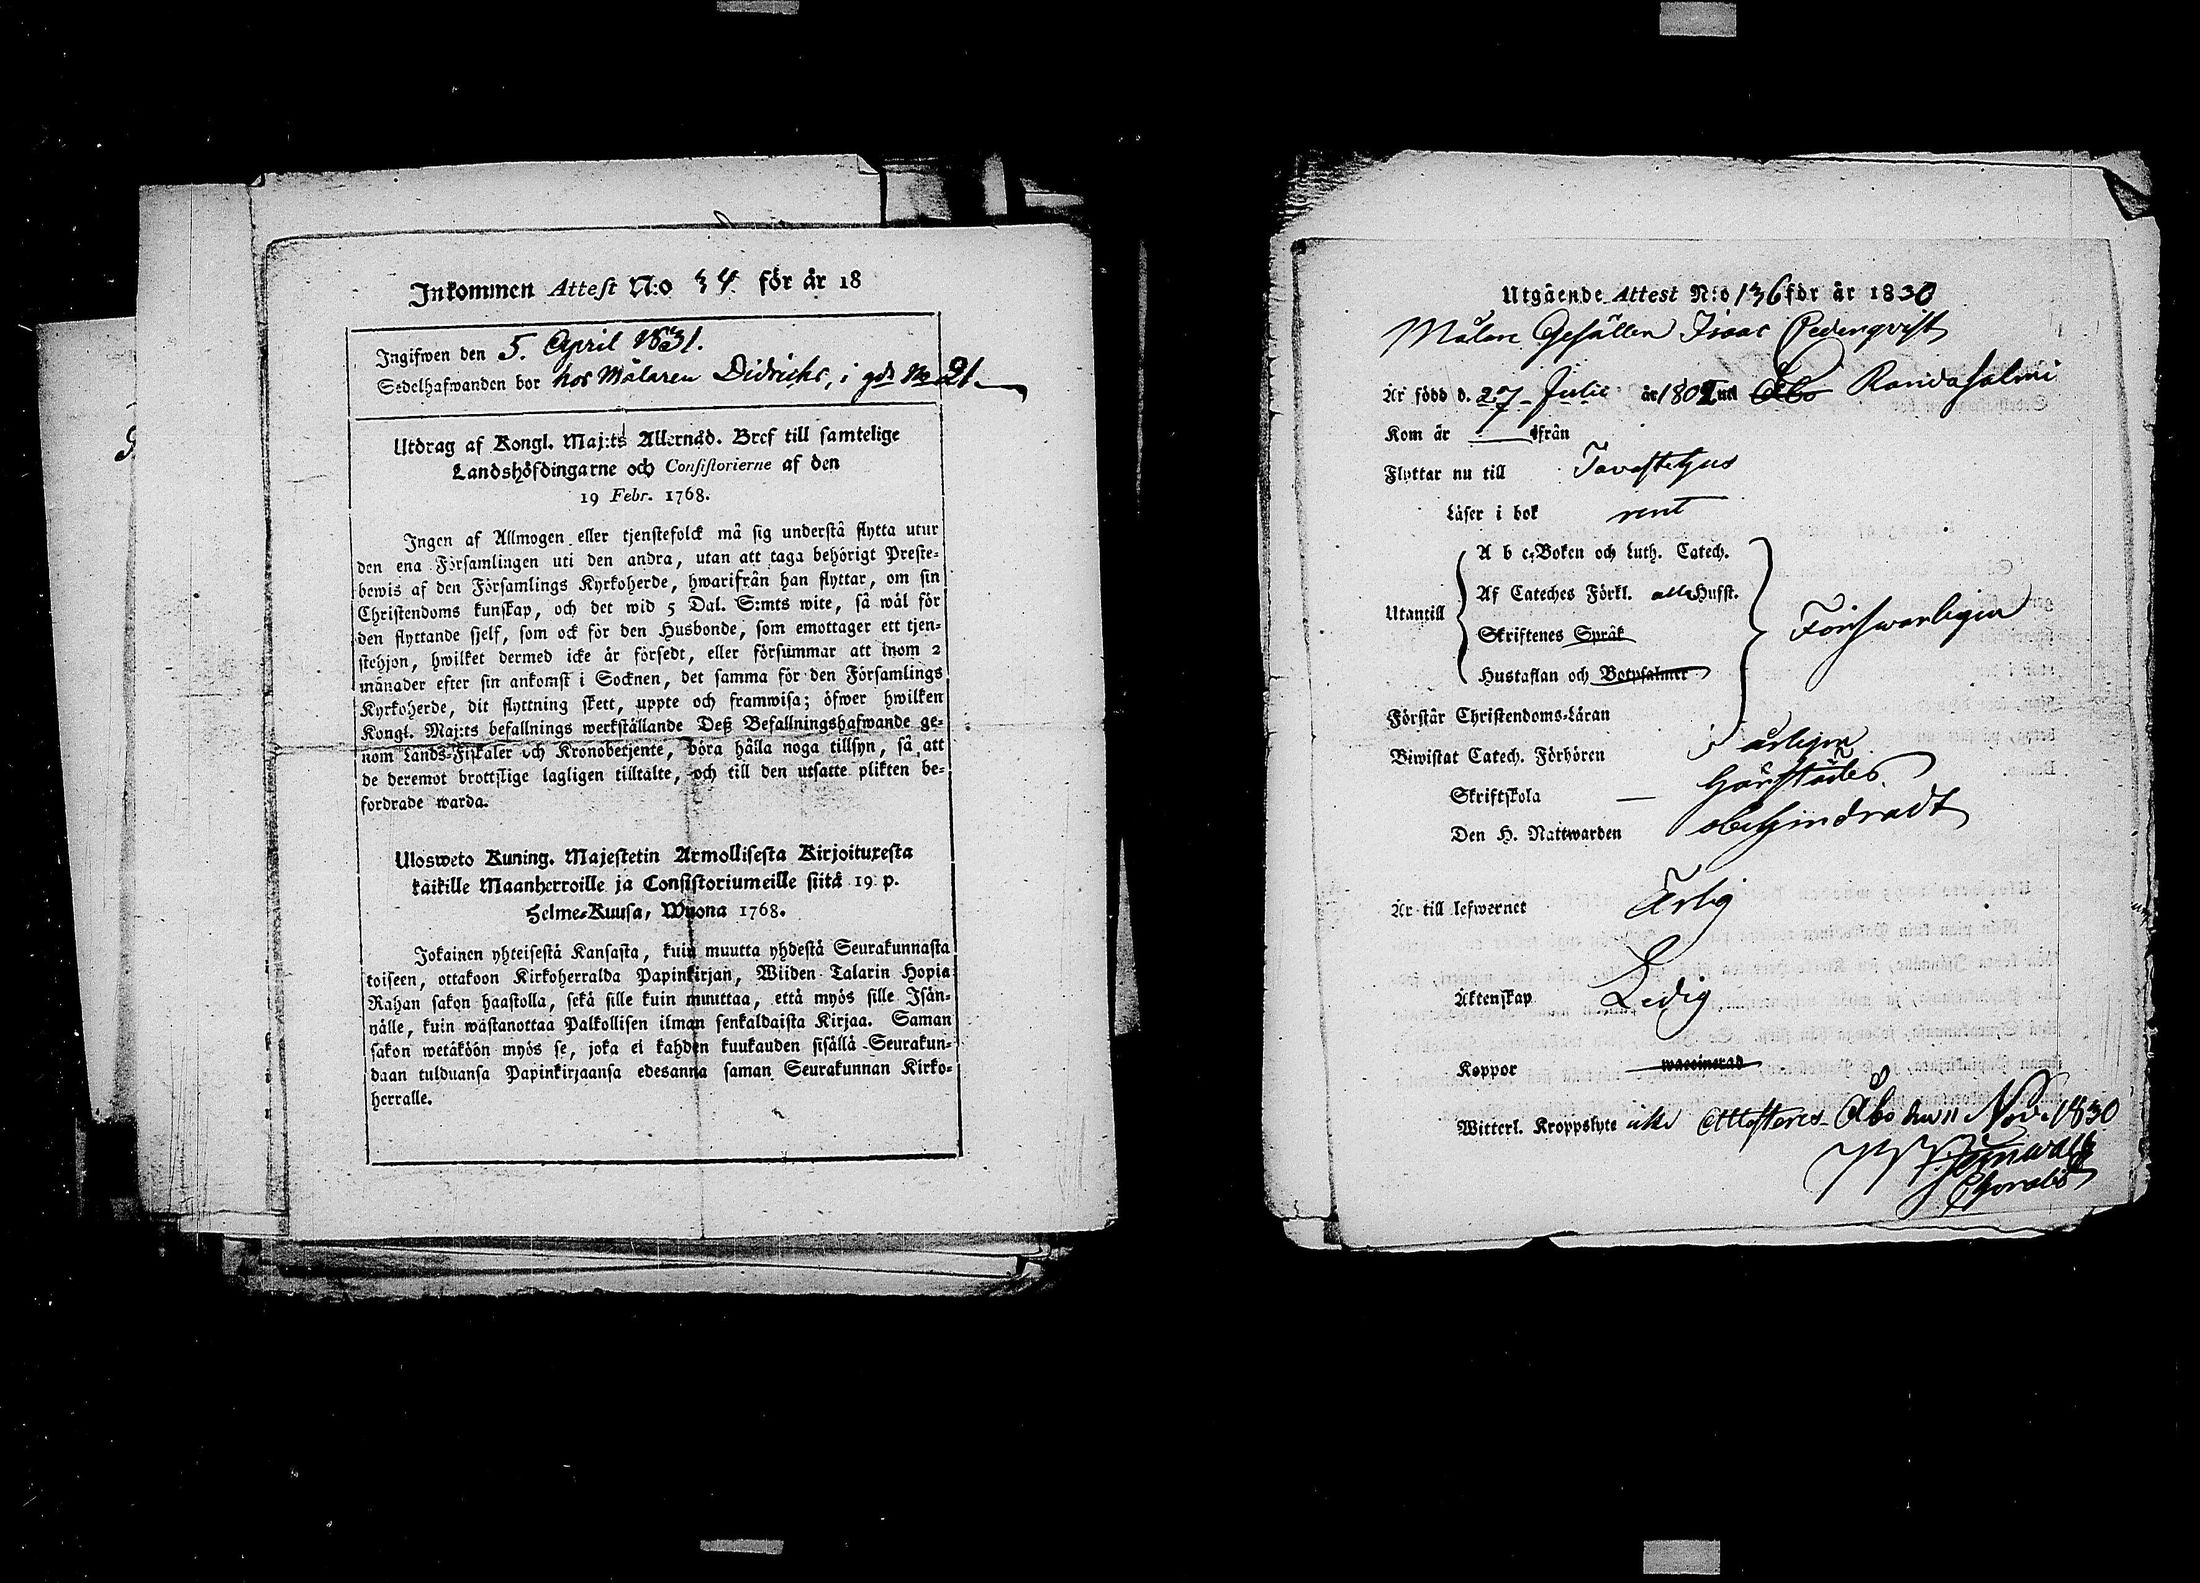 Inkommen Attest N:o 34 för år 18
Ingifwen den 5. April 1831.
Sedelhafwanden bor hos Målaren Didrichs, i gdn No 21.
Utdrag af Kongl. Maj:ts Allernåd. Bref till samtelige
Landshöfdingarne och Consistorierne af den
19 Febr. 1768.
Ingen af Allmogen eller tjenstefolck må sig understå flytta utur
den ena Församlingen uti den andra, utan att taga behörigt Preste-
bewis af den Församlings Kyrkoherde, hwarifrån han flyttar, om sin
Christendoms kunskap, och det wid 5 Dal. S:mts wite, så wäl för
den flyttande sjelf, som ock för den Husbonde, som emottager ett tjen-
stehjon, hwilket dermed icke är försedt, eller försummar att inom 2
månader efter sin ankomst i Socknen, det samma för den Församlings
Kyrkoherde, dit flyttning skett, uppte och framwisa; öfwer hwilken
Kongl. Maj:ts befallnings werkställande Deß Befallningshafwande ge-
nom Lands-Fiskaler och Kronobetjente, böra hålla noga tillsyn, så att
de deremot brottslige lagligen tilltalte, och till den utsatte plikten be-
fordrade warda.
Ulosweto Kuning. Majestetin Armollisesta Kirjoituxesta
kaikille Maanherroille ja Consistoriumeille siitä 19 p.
Helme-Kuusa, Wuona 1768.
Jokainen yhteisestä Kansasta, kuin muutta yhdestä Seurakunnasta
toiseen, ottakoon Kirkoherralda Papinkirjan, Wiiden Talarin Hopia
Rahan sakon haastolla, sekä sille kuin muuttaa, että myös sille Isän-
nälle, kuin wastanottaa Palkollisen ilman senkaldaista Kirjaa. Saman
sakon wetäköön myös se, joka ei kahden kuukauden sisällä Seurakun-
daan tulduansa Papinkirjaansa edesanna saman Seurakunnan Kirko-
herralle.
Utgående Attest N:o 136 för år 1830
Målare Gesällen Isaac Cedenqvist
Är född d. 27 Julii år 1802 uti Åbo Randasalmi
Kom år ifrån
Flyttar nu till Tavastehus
Läser i bok rent
Utantill
A b c-Boken och Luth. Catech.
Af Cateches Förkl. alla Hufst.
Skriftenes Språk
Hustaflan och Botpsalmer
Försvarligen
Förstår Christendoms-Läran
Biwistat Catech. Förhören årligen
Skriftskola härstädes
Den H. Nattwarden obehindradt
Är till lefwernet Ärlig
Äktenskap Ledig
Koppor waccinerad
Witterl. Kroppslyte icke Attesteras Åbo den 11 Nov. 1830